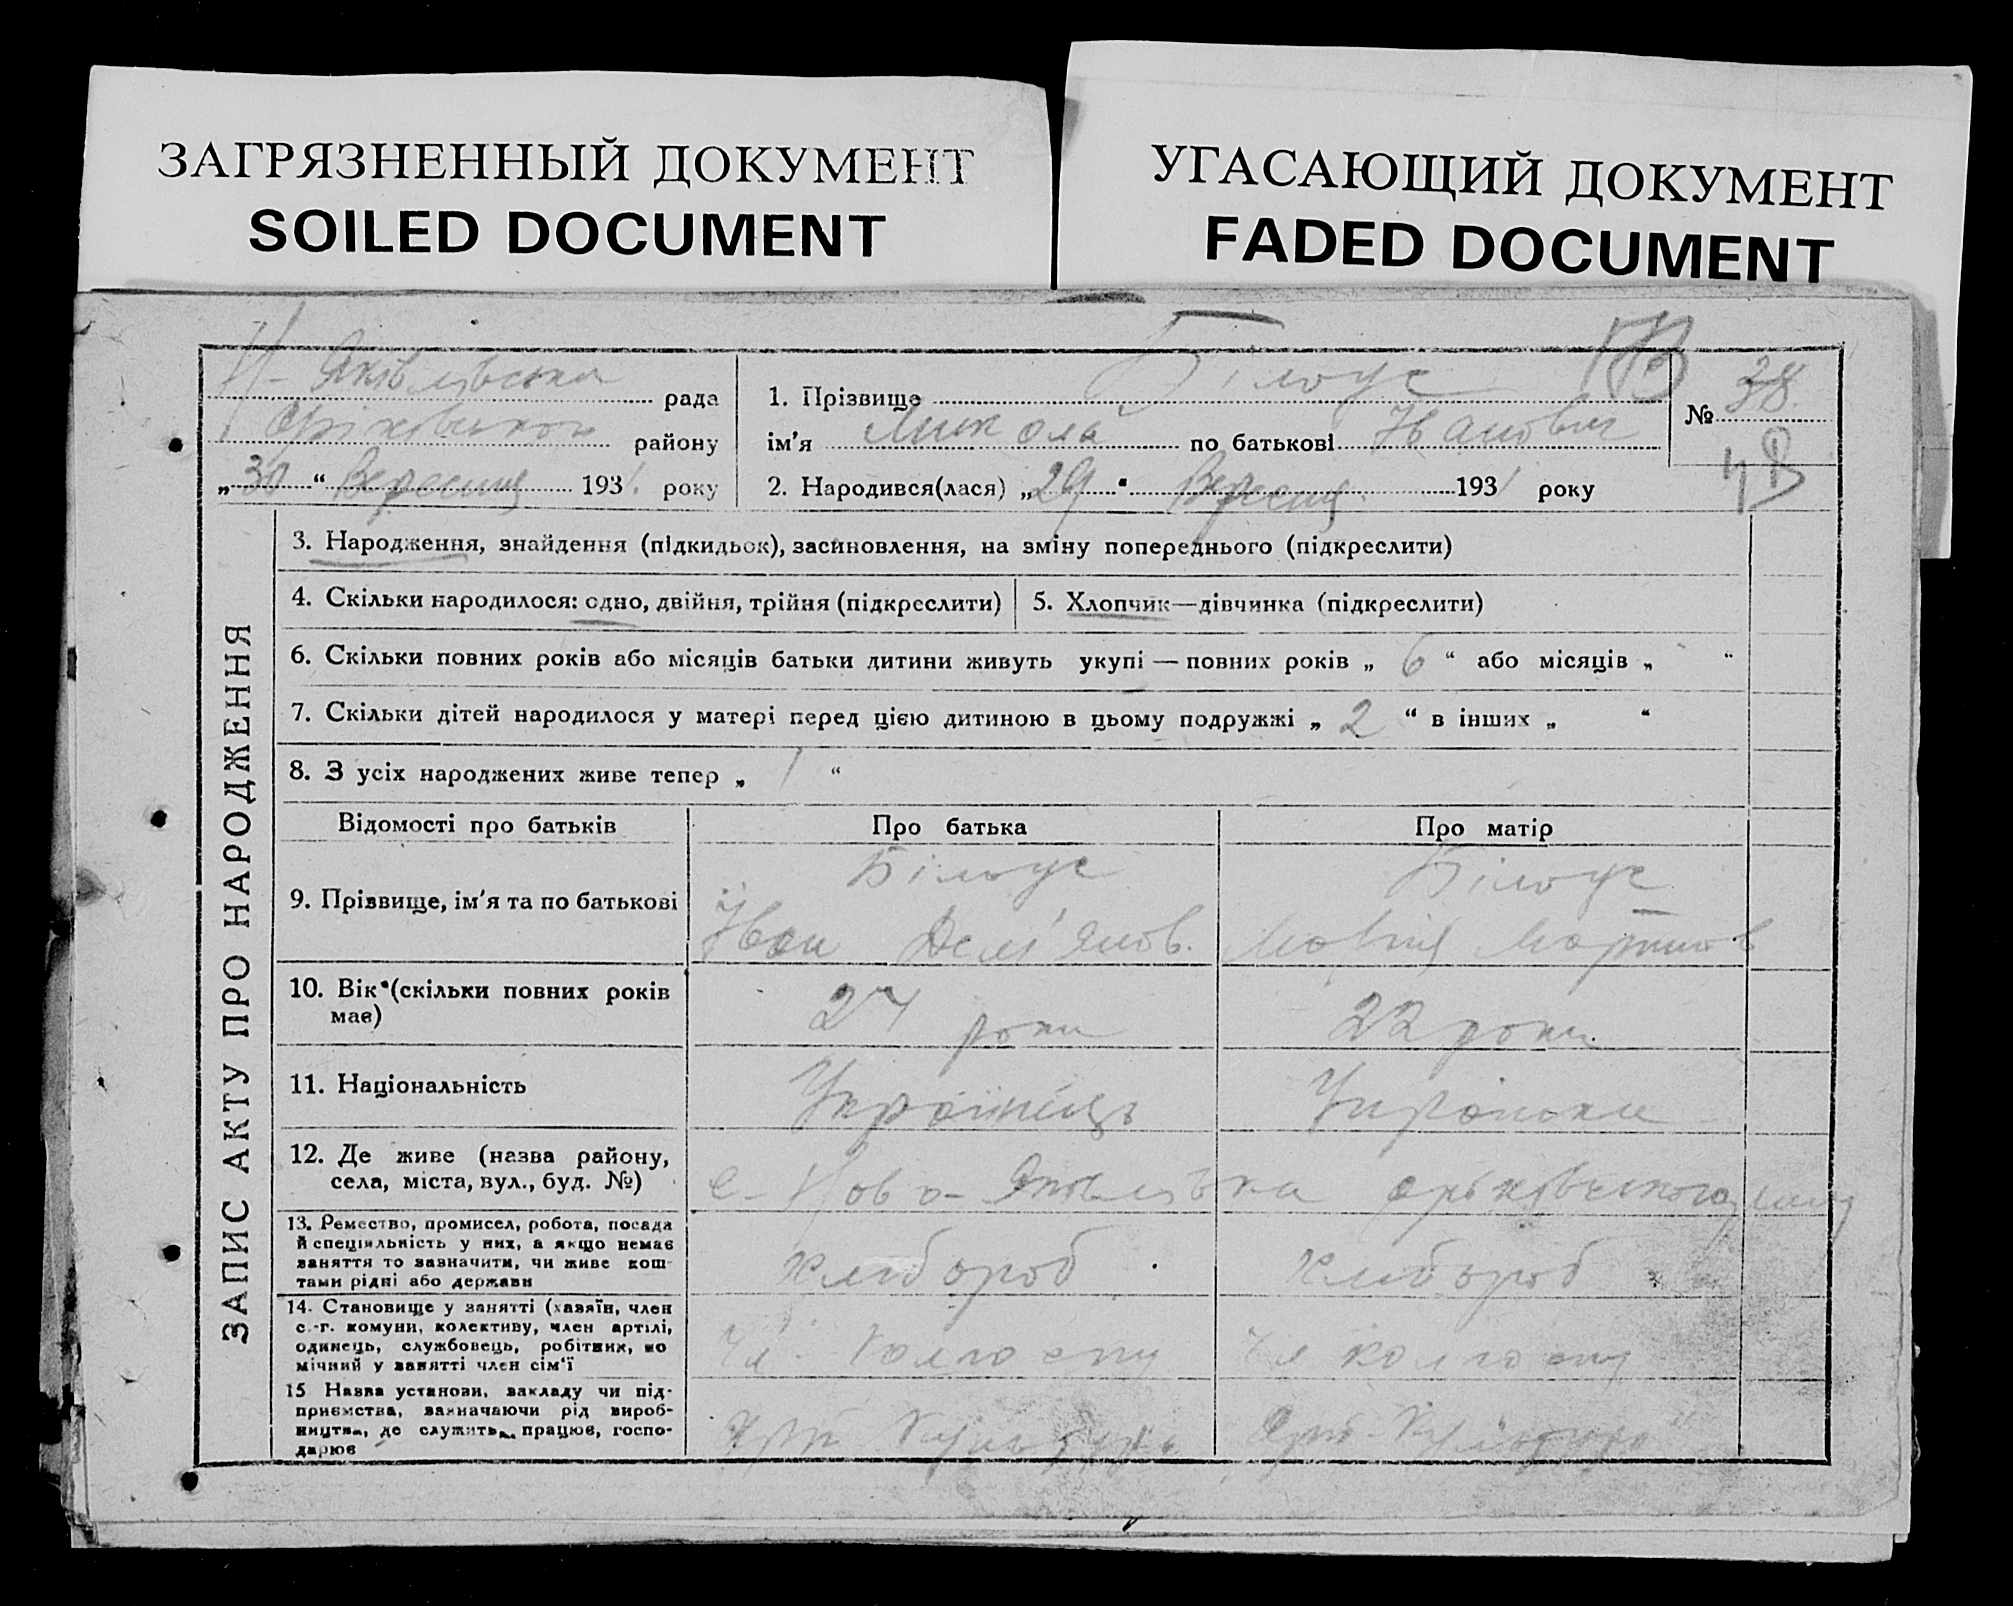 ЗАГРЯЗНЕННЫЙ ДОКУМЕНТ
SOILED DOCUMENT
УГАСАЮЩИЙ ДОКУМЕНТ
FADED DOCUMENT
Н-Яківлівська рада
Оріхівського району
„30“ Вересня 1931 року
1. Прізвище Білоус
ім’я Микола по батькові Іванович
2. Народився(лася) „29“ Вересня 1931 року
№ 38
ЗАПИС АКТУ ПРО НАРОДЖЕННЯ
3. Народження, знайдення (підкидьок), засиновлення, на зміну попереднього (підкреслити)
4. Скільки народилося: одно, двійня, трійня (підкреслити)
5. Хлопчик—дівчинка (підкреслити)
6. Скільки повних років або місяців батьки дитини живуть укупі — повних років „ 6 “ або місяців „ “
7. Скільки дітей народилося у матері перед цією дитиною в цьому подружжі „ 2 “ в інших „ “
8. З усіх народжених живе тепер „ 1 “
Відомості про батьків
Про батька
Про матір
9. Прізвище, ім’я та по батькові
Білоус
Іван Дем’янов.
Білоус
10. Вік (скільки повних років
має)
24 роки
22 роки
11. Національність
Українець
Українка
12. Де живе (назва району,
села, міста, вул., буд. №)
с. Ново-Яківлівка Оріхівського
13. Ремество, промисел, робота, посада
й спеціяльність у них, а якщо немає
заняття то зазначити, чи живе кош-
тами рідні або держави
хлібороб
хлібороб
14. Становище у занятті (хазяїн, член
с.-г. комуни, колективу, член артілі,
одинець, службовець, робітник, по
мічний у занятті член сім’ї
Чл. колгоспу
Чл колгоспу
15 Назва установи, закладу чи під-
приємства, зазначаючи рід вироб-
ництва, де служить, працює, госпо-
дарює